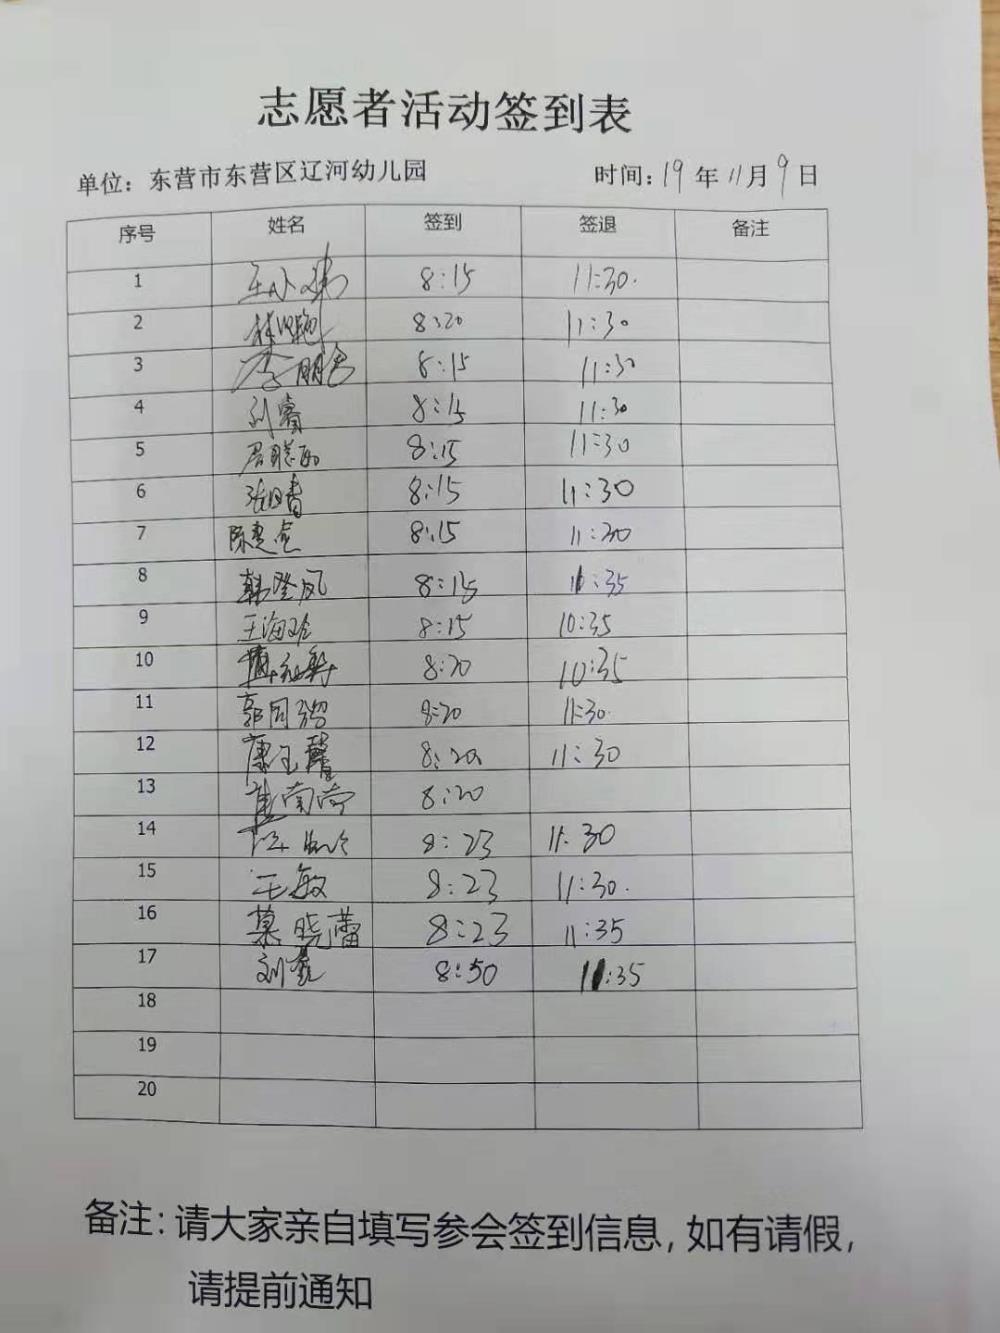 志愿者活动签到表
单位：东营市东营区辽河幼儿园 时间：19年11月9日
序号 姓名 签到 签退 备注
1 8:15 11:30.
2 8:20 11:30
3 8:15 11:30
4 刘睿 8:15 11:30
5 8:15 11:30
6 8:15 11:30
7 8:15 11:30
8 韩登凤 8:15 11:35
9 王海玲 8:15 10:35
10 8:20 10:35
11 郭同 8:20 11:30.
12 康玉馨 8:20 11:30
13 崔南南 8:20
14 8:23 11:30
15 王敏 8:23 11:30.
16 慕晓蕾 8:23 11:35
17 刘 8:50 11:35
18
19
20
备注：请大家亲自填写参会签到信息，如有请假，
请提前通知